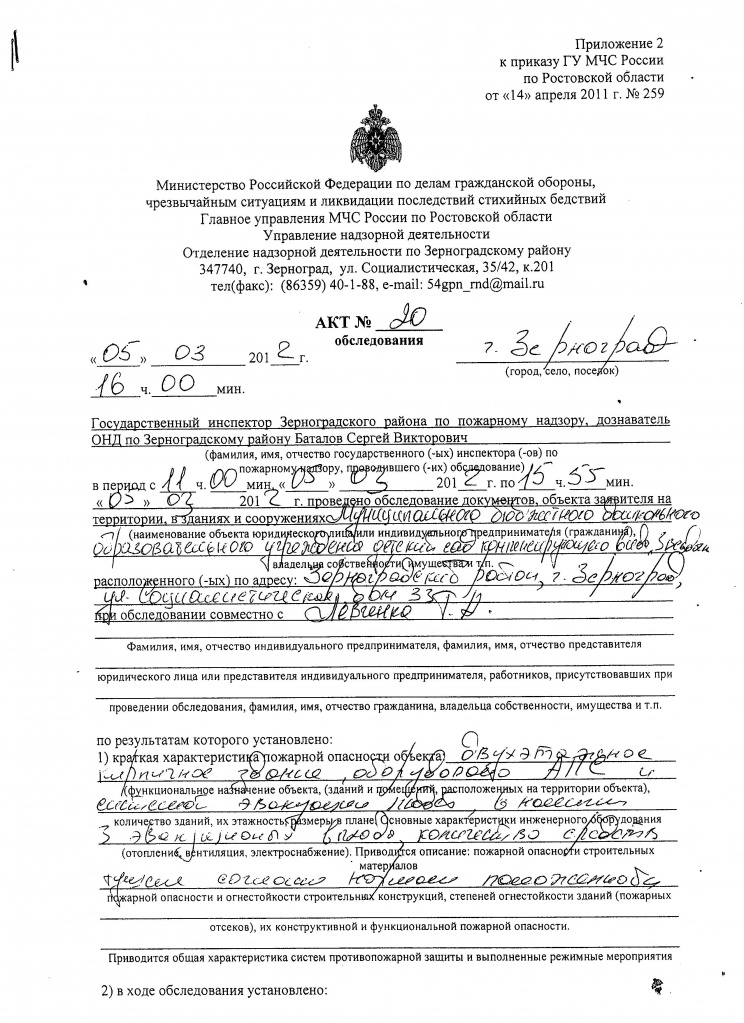 Приложение 2
к приказу ГУ МЧС России
по Ростовской области
от «14» апреля 2011 г. № 259
Министерство Российской Федерации по делам гражданской обороны,
чрезвычайным ситуациям и ликвидации последствий стихийных бедствий
Главное управления МЧС России по Ростовской области
Управление надзорной деятельности
Отделение надзорной деятельности по Зерноградскому району
347740, г. Зерноград, ул. Социалистическая, 35/42, к.201
тел(факс): (86359) 40-1-88, e-mail: 54gpn_rnd@mail.ru
АКТ № 20
обследования
«05» 03 2012 г. г. Зерноград
(город, село, поселок)
16 ч. 00 мин.
Государственный инспектор Зерноградского района по пожарному надзору, дознаватель
ОНД по Зерноградскому району Баталов Сергей Викторович
(фамилия, имя, отчество государственного (-ых) инспектора (-ов) по
пожарному надзору, проводившего (-их) обследование)
в период с 11 ч. 00 мин. «05» 03 2012 г. по 15 ч. 55 мин.
«05» 03 2012 г. проведено обследование документов, объекта заявителя на
территории, в зданиях и сооружениях Муниципального бюджетного дошкольного
(наименование объекта юридического лица или индивидуального предпринимателя (гражданина),
образовательного учреждения детский сад компенсирующего вида
владельца собственности, имущества и т.п.
расположенного (-ых) по адресу: Зерноградский район, г. Зерноград,
ул. Социалистическая, дом 33
при обследовании совместно с Левченко Т.А.
Фамилия, имя, отчество индивидуального предпринимателя, фамилия, имя, отчество представителя
юридического лица или представителя индивидуального предпринимателя, работников, присутствовавших при
проведении обследования, фамилия, имя, отчество гражданина, владельца собственности, имущества и т.п.
по результатам которого установлено:
1) краткая характеристика пожарной опасности объекта: двухэтажное
кирпичное здание, оборудовано АПС и
(функциональное назначение объекта, (зданий и помещений, расположенных на территории объекта),
системой эвакуации людей, в наличии
количество зданий, их этажность, размеры в плане. Основные характеристики инженерного оборудования
3 выхода, количество средств
(отопление, вентиляция, электроснабжение). Приводится описание: пожарной опасности строительных
материалов
согласно нормам
пожарной опасности и огнестойкости строительных конструкций, степеней огнестойкости зданий (пожарных
отсеков), их конструктивной и функциональной пожарной опасности.
Приводится общая характеристика систем противопожарной защиты и выполненные режимные мероприятия
2) в ходе обследования установлено: